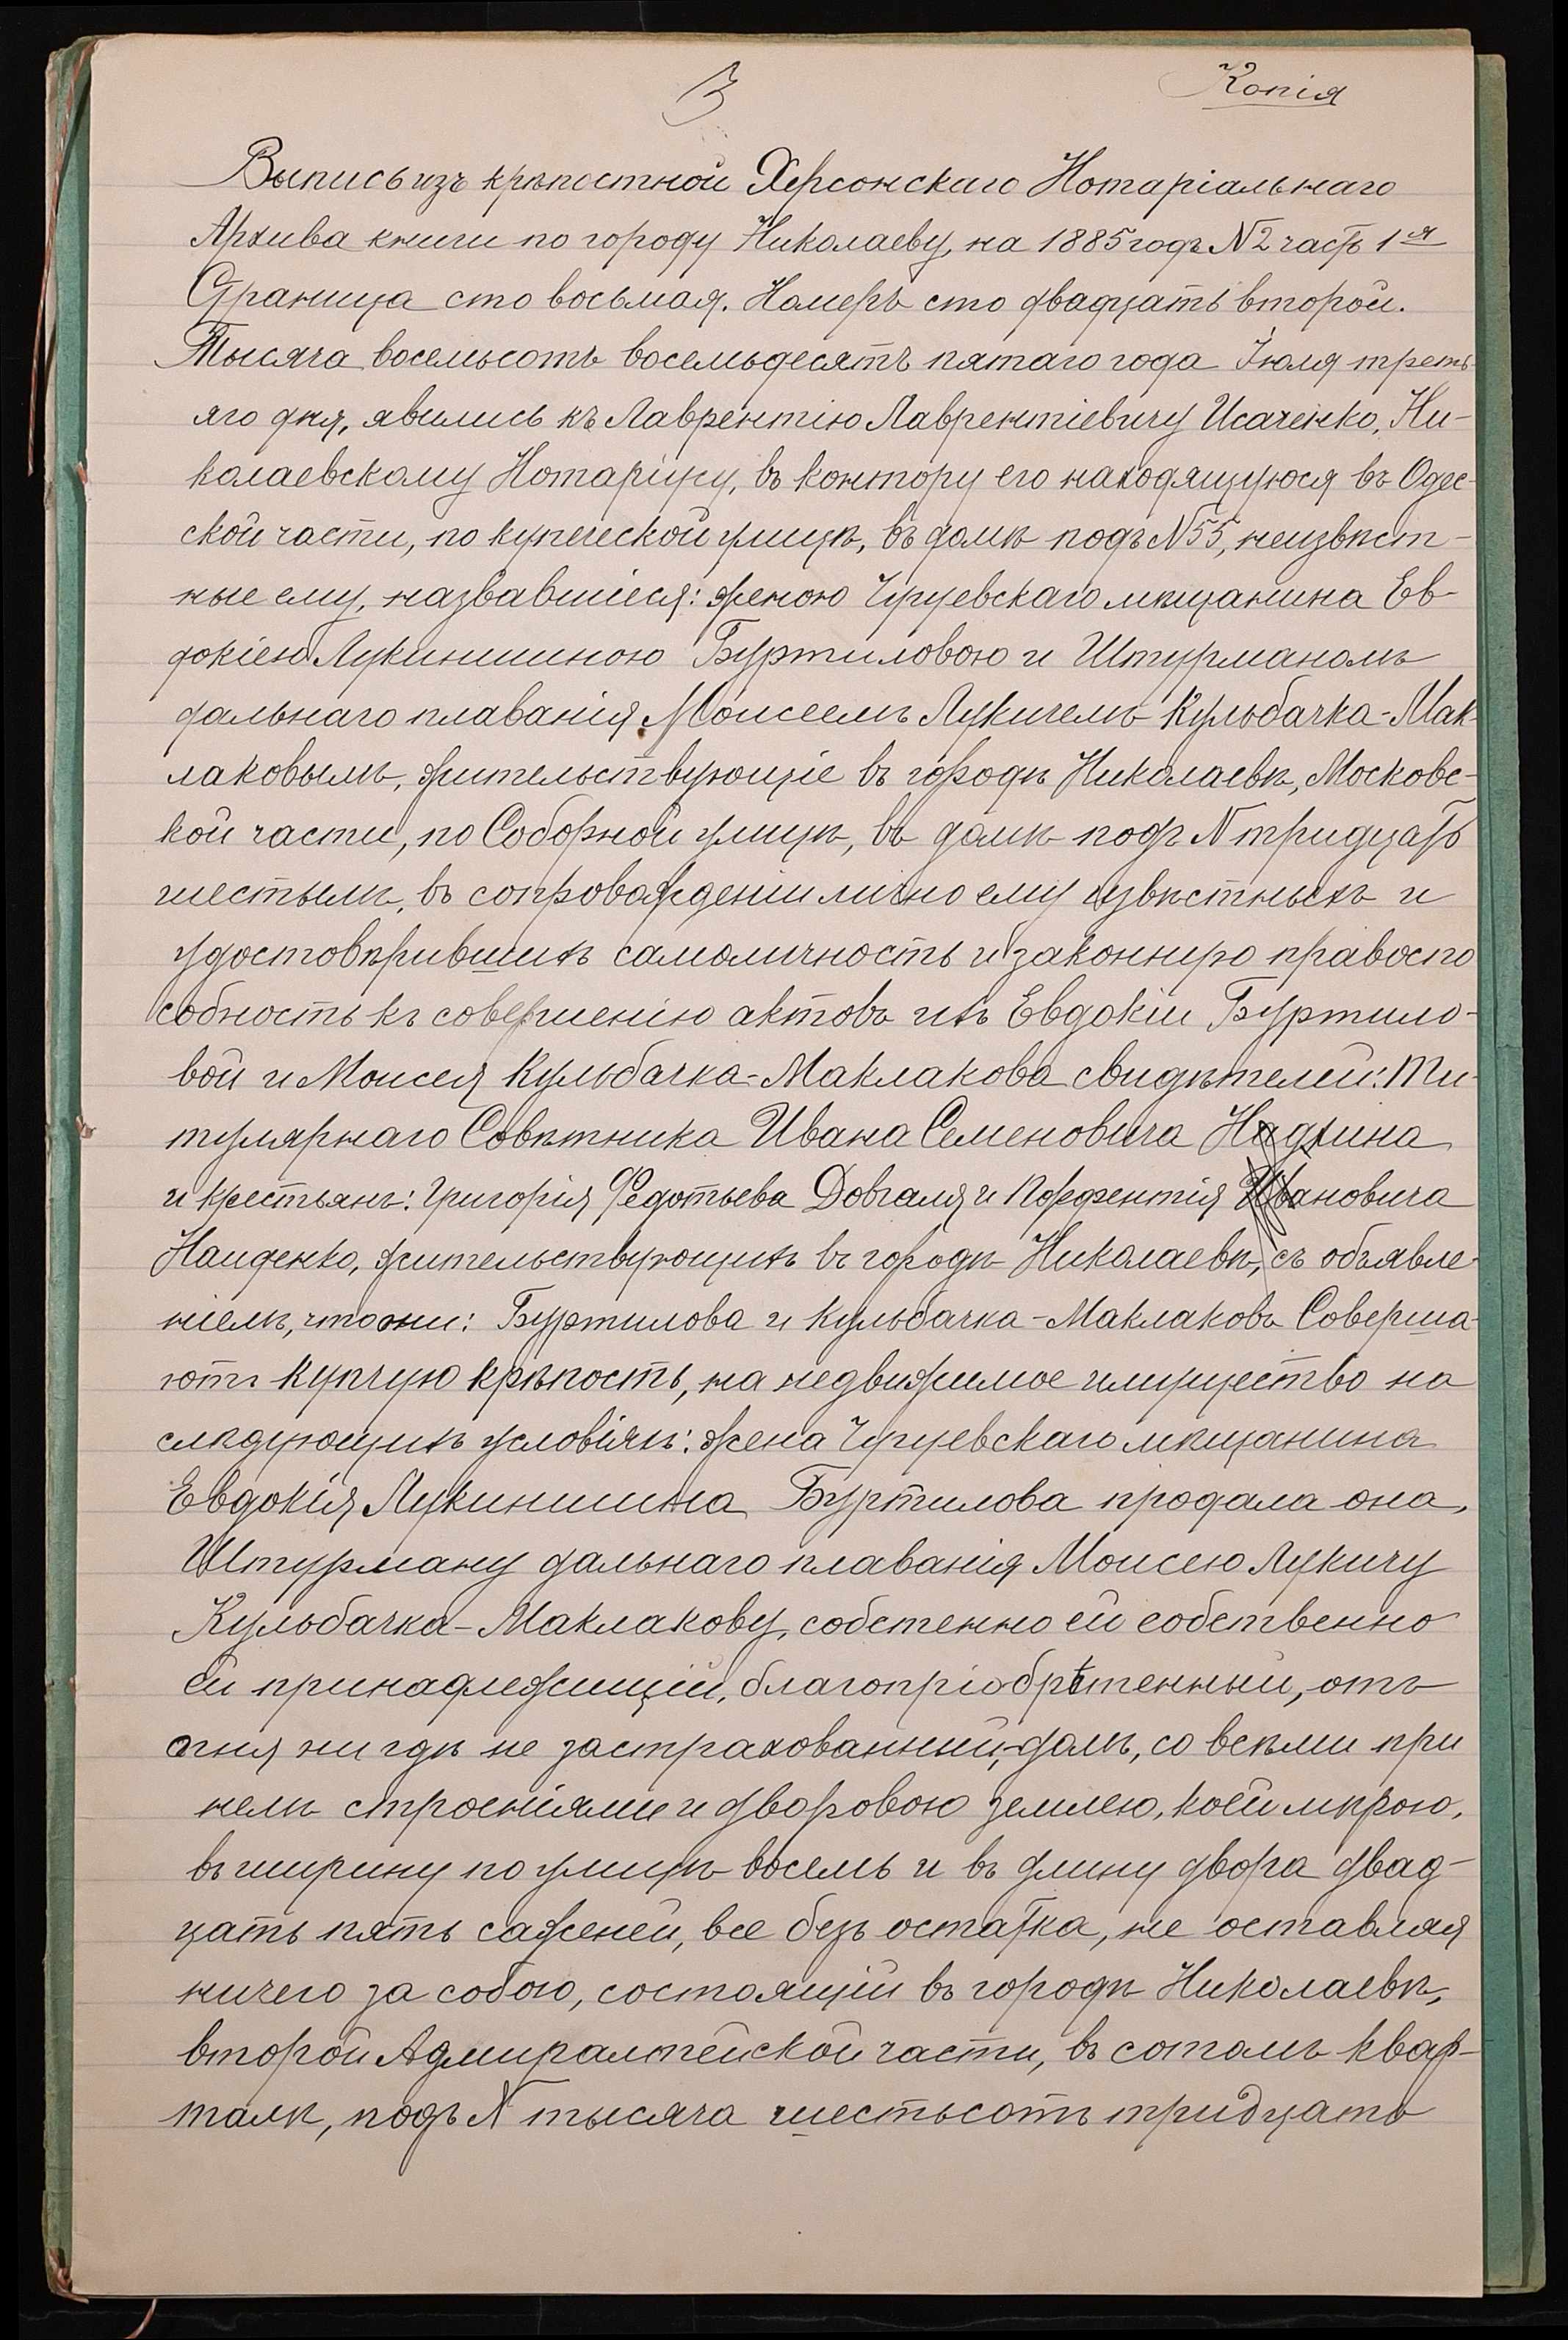 3
Копія
Выпись изъ крѣпостной Херсонскаго Нотаріальнаго
Архива книги по городу Николаеву, на 1885 годъ N2 часть 1я
Страница сто восьмая. Номеръ сто двадцать второй.
Тысяча восемьсотъ восемьдесятъ пятаго года Іюля треть-
яго дня, явились къ Лаврентію Лаврентіевичу Исаченко, Ни-
колаевскому Нотаріусу, въ контору его находящуюся въ Одес-
ской части, по купеческой улицѣ, въ домѣ подъ N55, неизвѣст-
ные ему, назвавшіеся: женою Чугуевскаго мѣщанина Ев-
докіею Лукинишною Буртиловою и Штурманомъ
дальнаго плаванія Моисеемъ Лукичемъ Кульбачка-Мак-
лаковымъ, жительствующіе въ городѣ Николаевѣ, Московс-
кой части, по Соборной улицѣ, въ домѣ подъ N тридцать
шестымъ, въ сопровожденіи лично ему извѣстныхъ и
удостовѣрившихъ самоличность и законную правоспо
собность къ совершенію актовъ ихъ Евдокіи Буртило-
вой и Моисея Кульбачка-Маклакова свидѣтелей: Ти-
тулярнаго Совѣтника Ивана Семеновича Надхина
и крестьянъ: Григорія Федотьева Довгаля и Ивановича
Найденко, жительствующихъ въ городѣ Николаевѣ, съ объявле-
ніемъ, что они: Буртилова и Кульбачка-Маклаковъ Соверша-
ютъ купчую крѣпость, на недвижимое имущество на
слѣдующихъ условіяхъ: жена Чугуевскаго мѣщанина
Евдокія Лукинишна Буртилова продала она,
Штурману дальнаго плаванія Моисею Лукичу
Кульбачка-Маклакову, собстенно ей собственно
ей принадлежищій, благопріобрѣтенный, отъ
огня ни гдѣ не застрахованный,-домъ, со всѣми при
немъ строеніями и дворовою землею, коей мѣрою,
въ ширину по улицѣ восемь и въ длину двора двад-
цать пять саженей, все безъ остатка, не оставляя
ничего за собою, состоящій въ городѣ Николаевѣ,
второй Адмиралтейской части, въ сотомъ квар-
талѣ, подъ N тысяча шестьсотъ тридцать